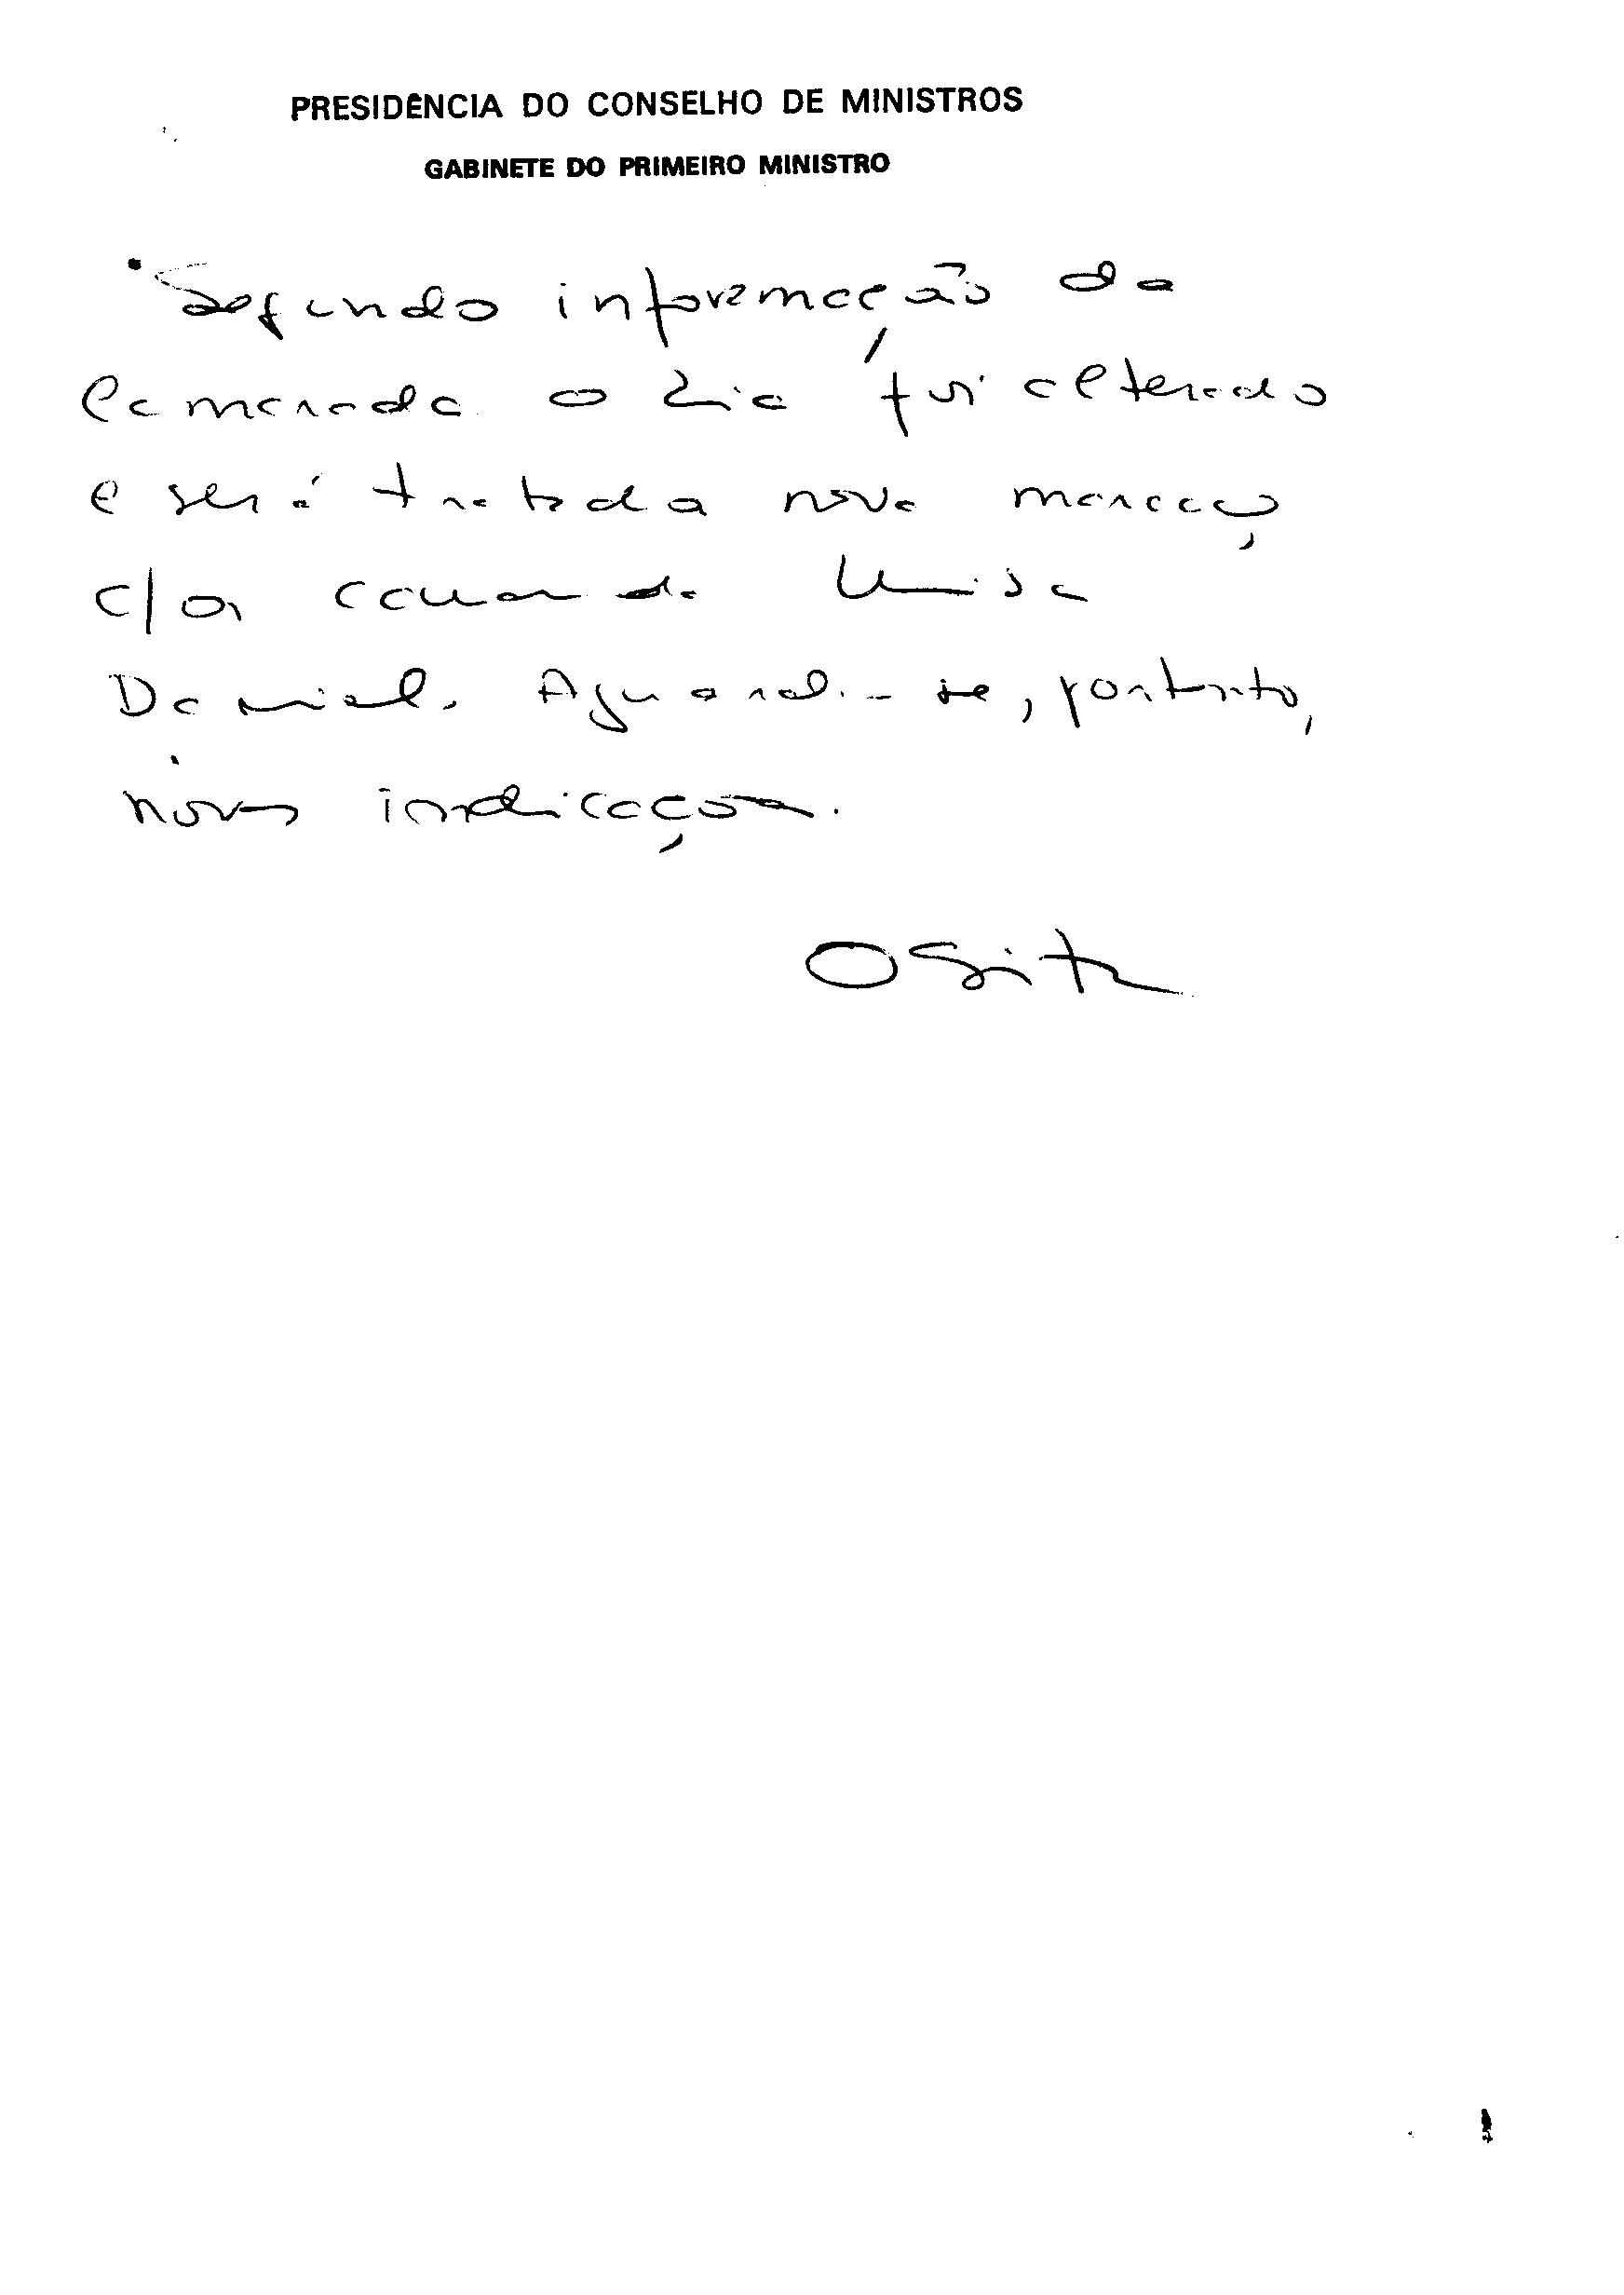 PRESIDÊNCIA DO CONSELHO DE MINISTROS
GABINETE DO PRIMEIRO MINISTRO
Segundo informação da
Camarada o dia foi alterado
e será tratada nova marcação
c/a camarada Luisa
Daniel. Aguarda-se, portanto,
nova indicação.